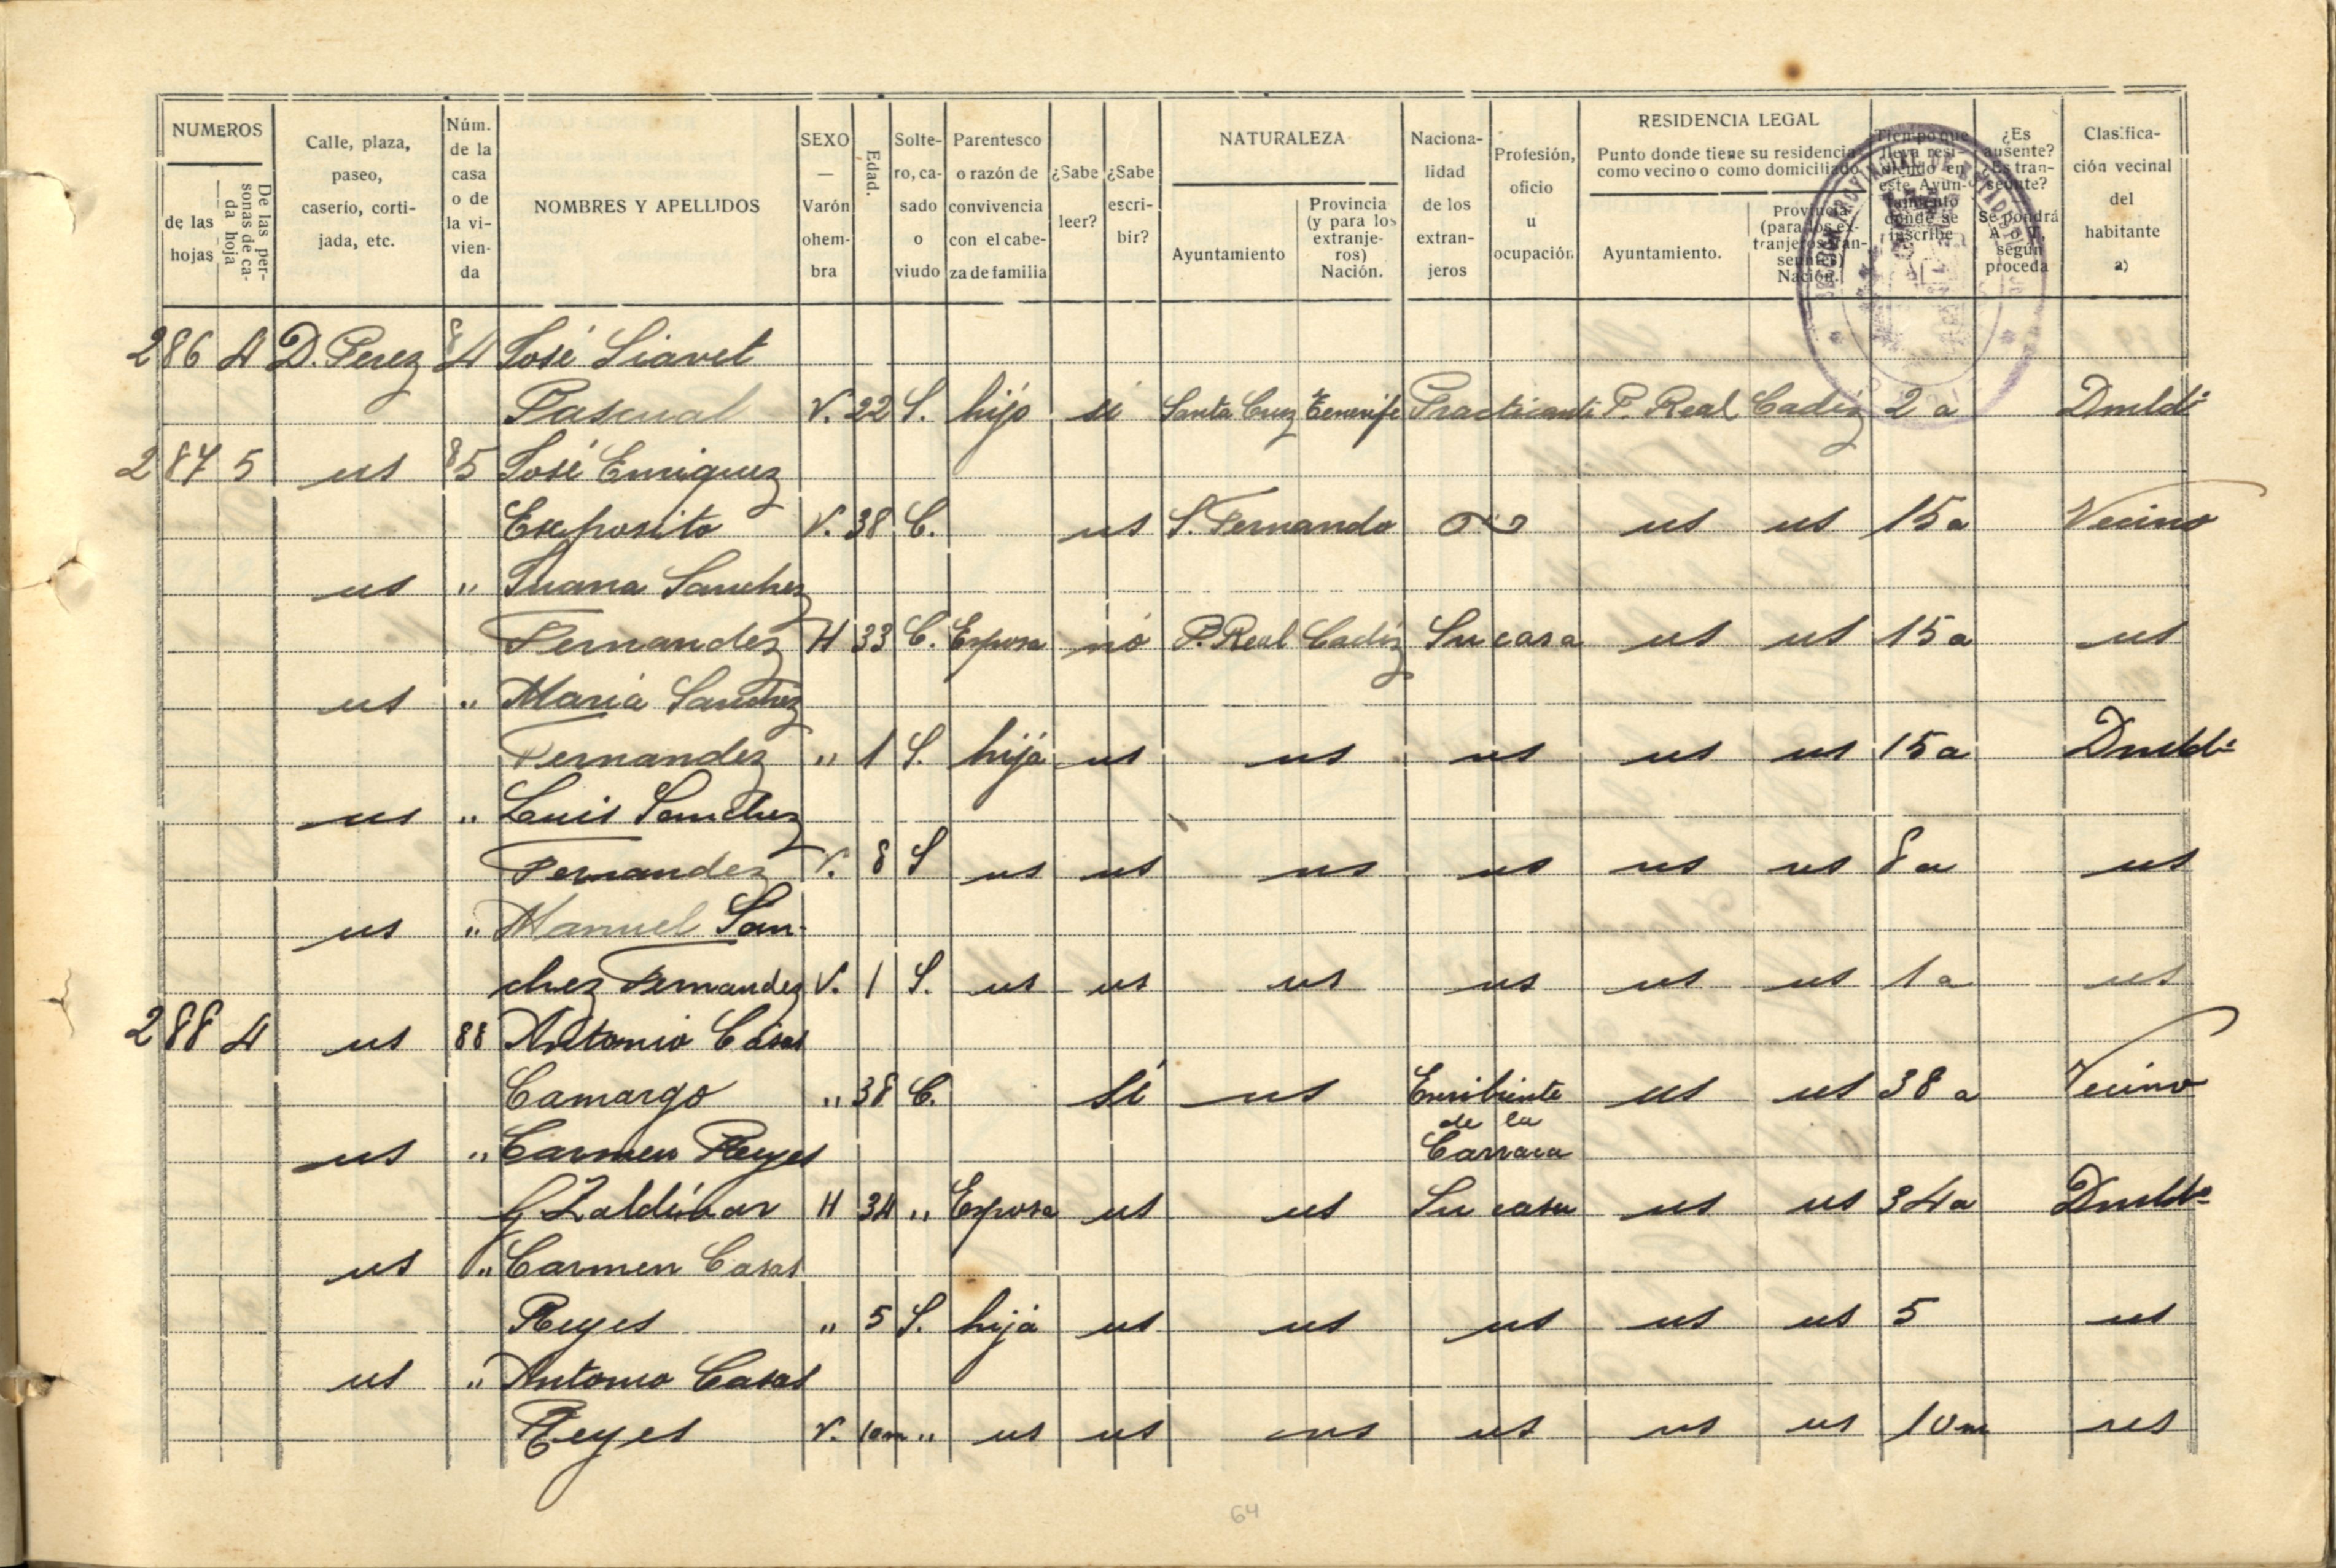 NUMEROS
de las hojas
De las personas de cada hoja
Calle, plaza, paseo, caserío, cortijada, etc.
Núm. de la casa o de la vivienda
NOMBRES Y APELLIDOS
SEXO — Varón ohembra
Edad.
Soltero, casado o viudo
Parentesco o razón de convivencia con el cabeza de familia
¿Sabe leer?
¿Sabe escribir?
NATURALEZA
Ayuntamiento
Provincia (y para los extranjeros) Nación.
Nacionalidad de los extranjeros
Profesión, oficio u ocupación
RESIDENCIA LEGAL
Punto donde tiene su residencia como vecino o como domiciliado
Ayuntamiento.
Provincia (para los extranjeros transeuntes) Nación.
Tiempo que lleva residiendo en este Ayuntamiento donde se inscribe
¿Es ausente? Es transeunte? Se pondrá A o T, según proceda
Clasificación vecinal del habitante a)
286 4 D. Perez 84 José Liavet
Pascual V. 22 S. hijo si Santa Cruz Tenerife Practicante P. Real Cadiz 2 a Dmldo
287 5 us 85 José Enriquez
Exposito V. 38 C. us S. Fernando us us 15 a Vecino
us " Juana Sanchez
Fernandez H 33 C. Esposa nó P. Real Cadiz Su casa us us 15 a us
us " Maria Sanchez
Fernandez " 1 S. hija us us us us us 15 a Dmldo
us " Luis Sanchez
Fernandez V. 8 S us us us us us us 8 a us
us " Manuel San-
chez Fernandez V. 1 S. us us us us us us 1 a us
288 4 us 88 Antonio Casas
Camargo " 38 C. sí us Escribiente us us 38 a Vecino
de la
us " Carmen Reyes Carraca
G Zaldívar H 34 " Esposa us us Su casa us us 34 a Dmldo
us " Carmen Casas
Reyes " 5 S. hija us us us us us 5 us
us " Antonio Casas
Reyes V. 10m " us us us us us us 10 m us
64